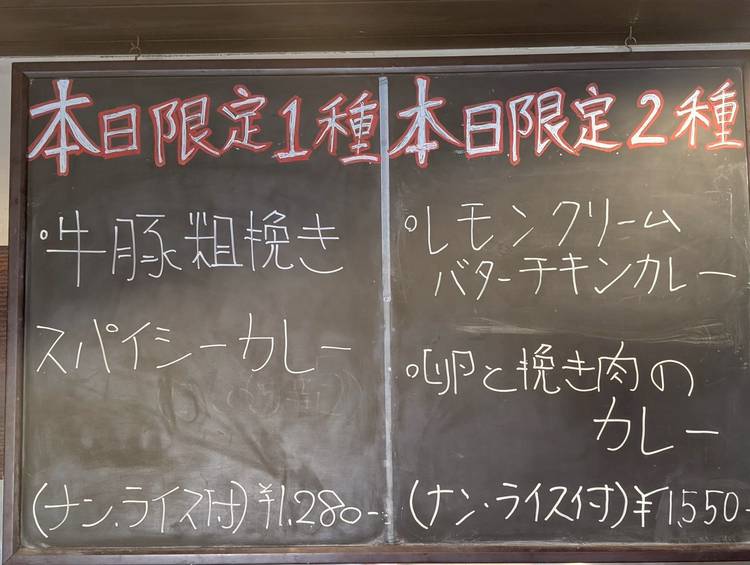 本日限定1種
°牛豚粗挽き
スパイシーカレー
(ナン.ライス付)¥1,280-
本日限定2種
°レモンクリーム
バターチキンカレー
°卵と挽き肉の
カレー
(ナン・ライス付)¥1,550-